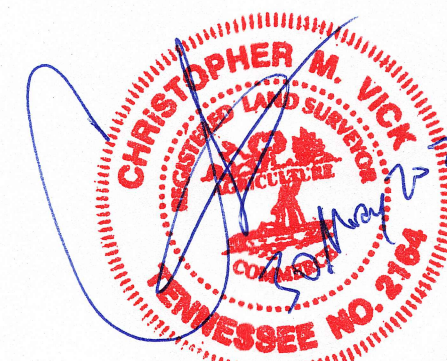 CHRISTOPHER M. VICK
REGISTERED LAND SURVEYOR
AGRICULTURE
COMMERCE
TENNESSEE NO. 2164
30 May